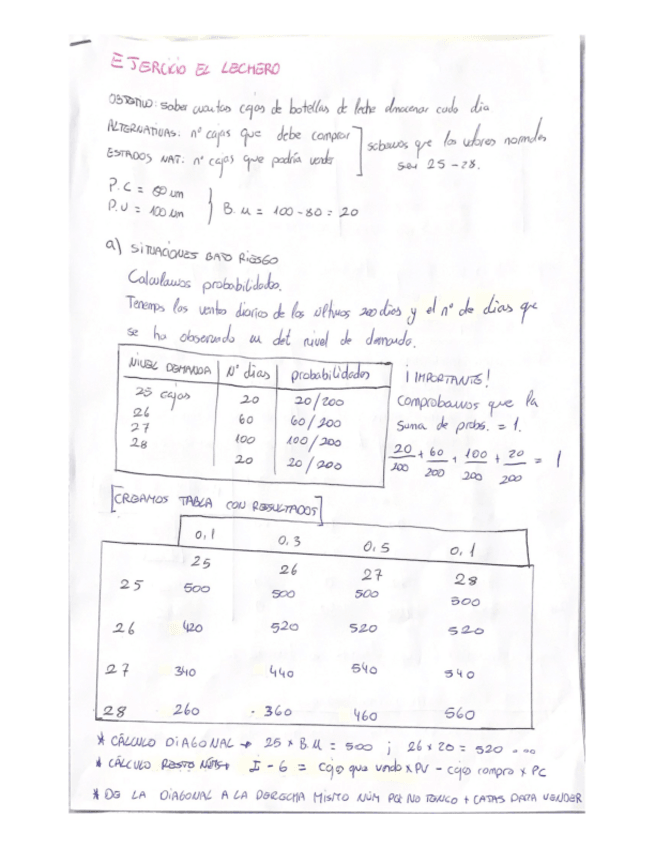 EJERCICIO EL LECHERO
OBJETIVO: saber cuantas cajas de botellas de leche almacenar cada dia
ALTERNATIVAS: nº cajas que debe comprar
ESTADOS NAT: nº cajas que podría vender
sabemos que los valores normales
son 25 - 28.
P.C = 80 um
P.V = 100 um
B.u = 100 - 80 = 20
a) SITUACIONES BAJO RIESGO
Calculamos probabilidades.
Tenemos las ventas diarias de los últimos 200 dios y el nº de dias que
se ha observado un det nivel de demanda.
NIVEL DEMANDA Nº dias probabilidades
25 cajas 20 20/200
26 60 60/200
27 100 100/200
28
20 20/200
¡IMPORTANTE!
Comprobamos que la
suma de probs. = 1.
20/200 + 60/200 + 100/200 + 20/200 = 1
[CREAMOS TABLA CON RESULTADOS]
0,1 0,3 0,5 0,1
25 26 27 28
25 500 500 500 500
26 420 520 520 520
27 340 440 540 540
28 260 360 460 560
* CÁLCULO DIAGONAL → 25 x B.u = 500 ; 26 x 20 = 520 ....
* CÁLCULO RESTO NÚMS I - G = cajas que vendo x PV - cajas compro x PC
* DE LA DIAGONAL A LA DERECHA MISMO NÚM PQ NO TENGO + CAJAS PARA VENDER